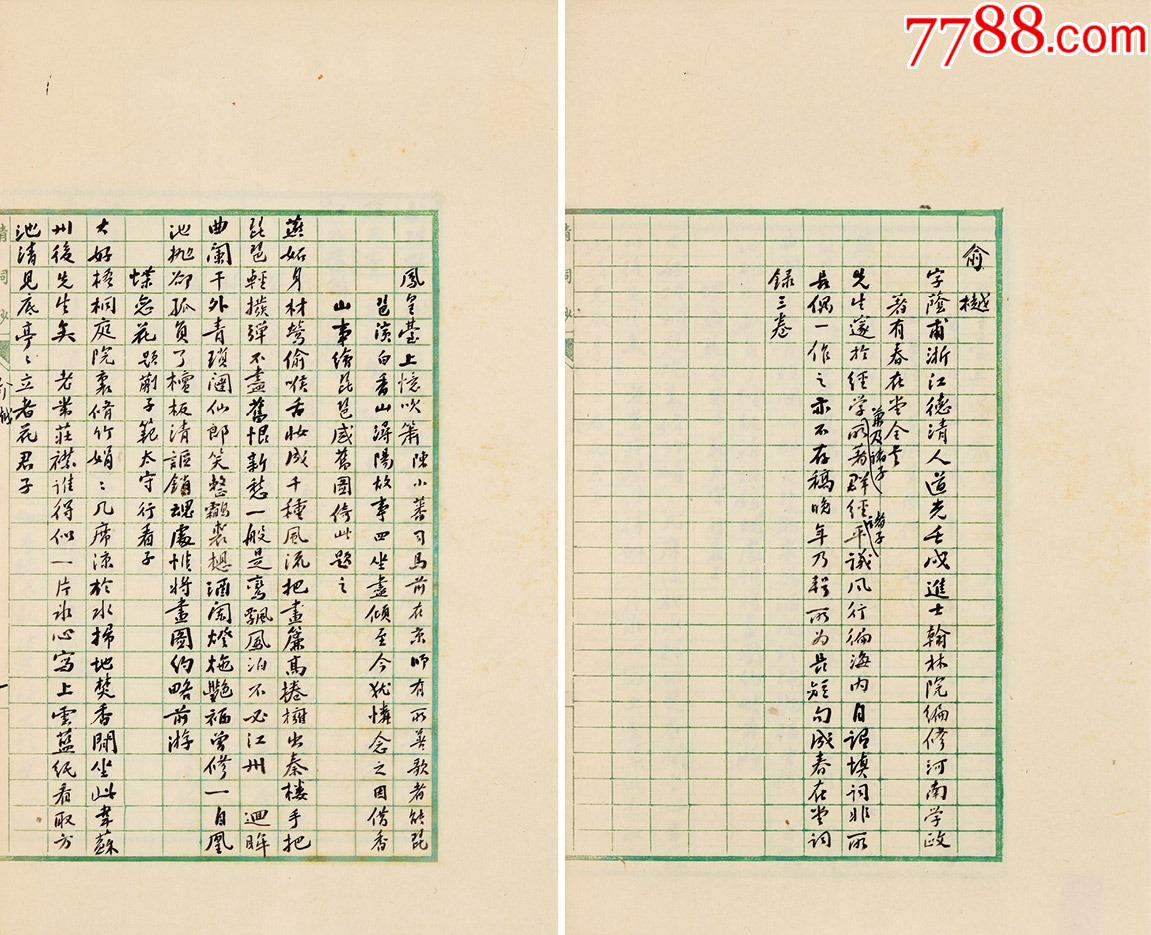 7788.com
俞樾
字蔭甫浙江德清人道光壬戌進士翰林院編修河南学政
著有春在堂全書
先生邃於經学所著群經平議風行徧海内自謂填词非所
兼及諸子
諸子
長偶一作之亦不存稿晚年乃輯所为長短句成春在堂词
録三卷
鳳皇臺上憶吹簫 陳小蕃司馬前在京师有所善歌者能琵
琶演白香山潯陽故事四坐盡傾至今犹憐念之因借香
山事繪琵琶感舊圖倩此題之
燕姤身材鶯偷喉舌妆成千種風流把畫簾高捲擁出秦楼手把
琵琶輕撥弹不盡舊恨新愁一般是鸞飄鳳泊不必江州 迴眸
曲闌干外青瑣闥仙郎笑整鸘裘想酒闌燈灺艷福曾修一自凰
池拋卻孤負了檀板清謳銷魂處惟將畫圖约略前游
蝶恋花 題蒯子範太守行看子
大好梧桐庭院裏脩竹娟〻几席凉於水掃地焚香閒坐此韋蘇
州後先生矣 老業莊襟谁得似一片冰心寫上雲藍紙看取方
池清見底亭〻立者花君子
清詞鈔
俞樾
一